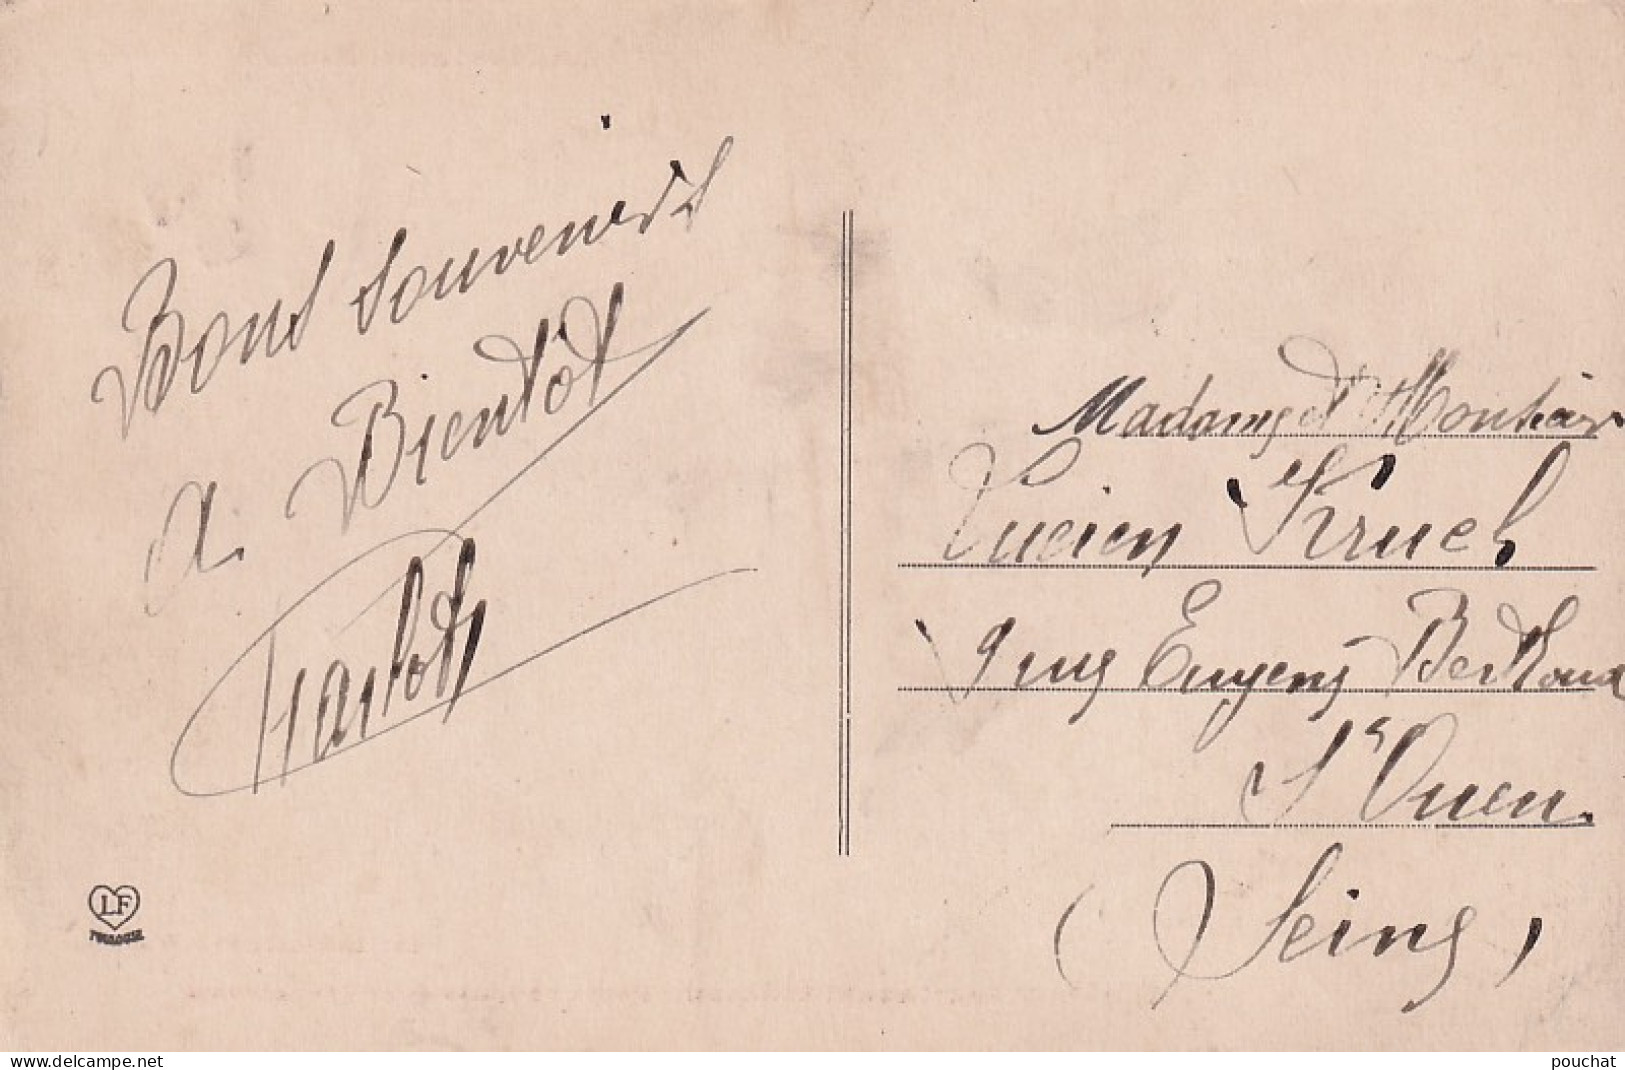 Bons souvenirs
A Bientôt
LF
TOULOUSE
Madame et Monsieur
Lucien Kruch
9 rue Eugene Berthoud
St Ouen
(Seine)
www.delcampe.net
pouchat